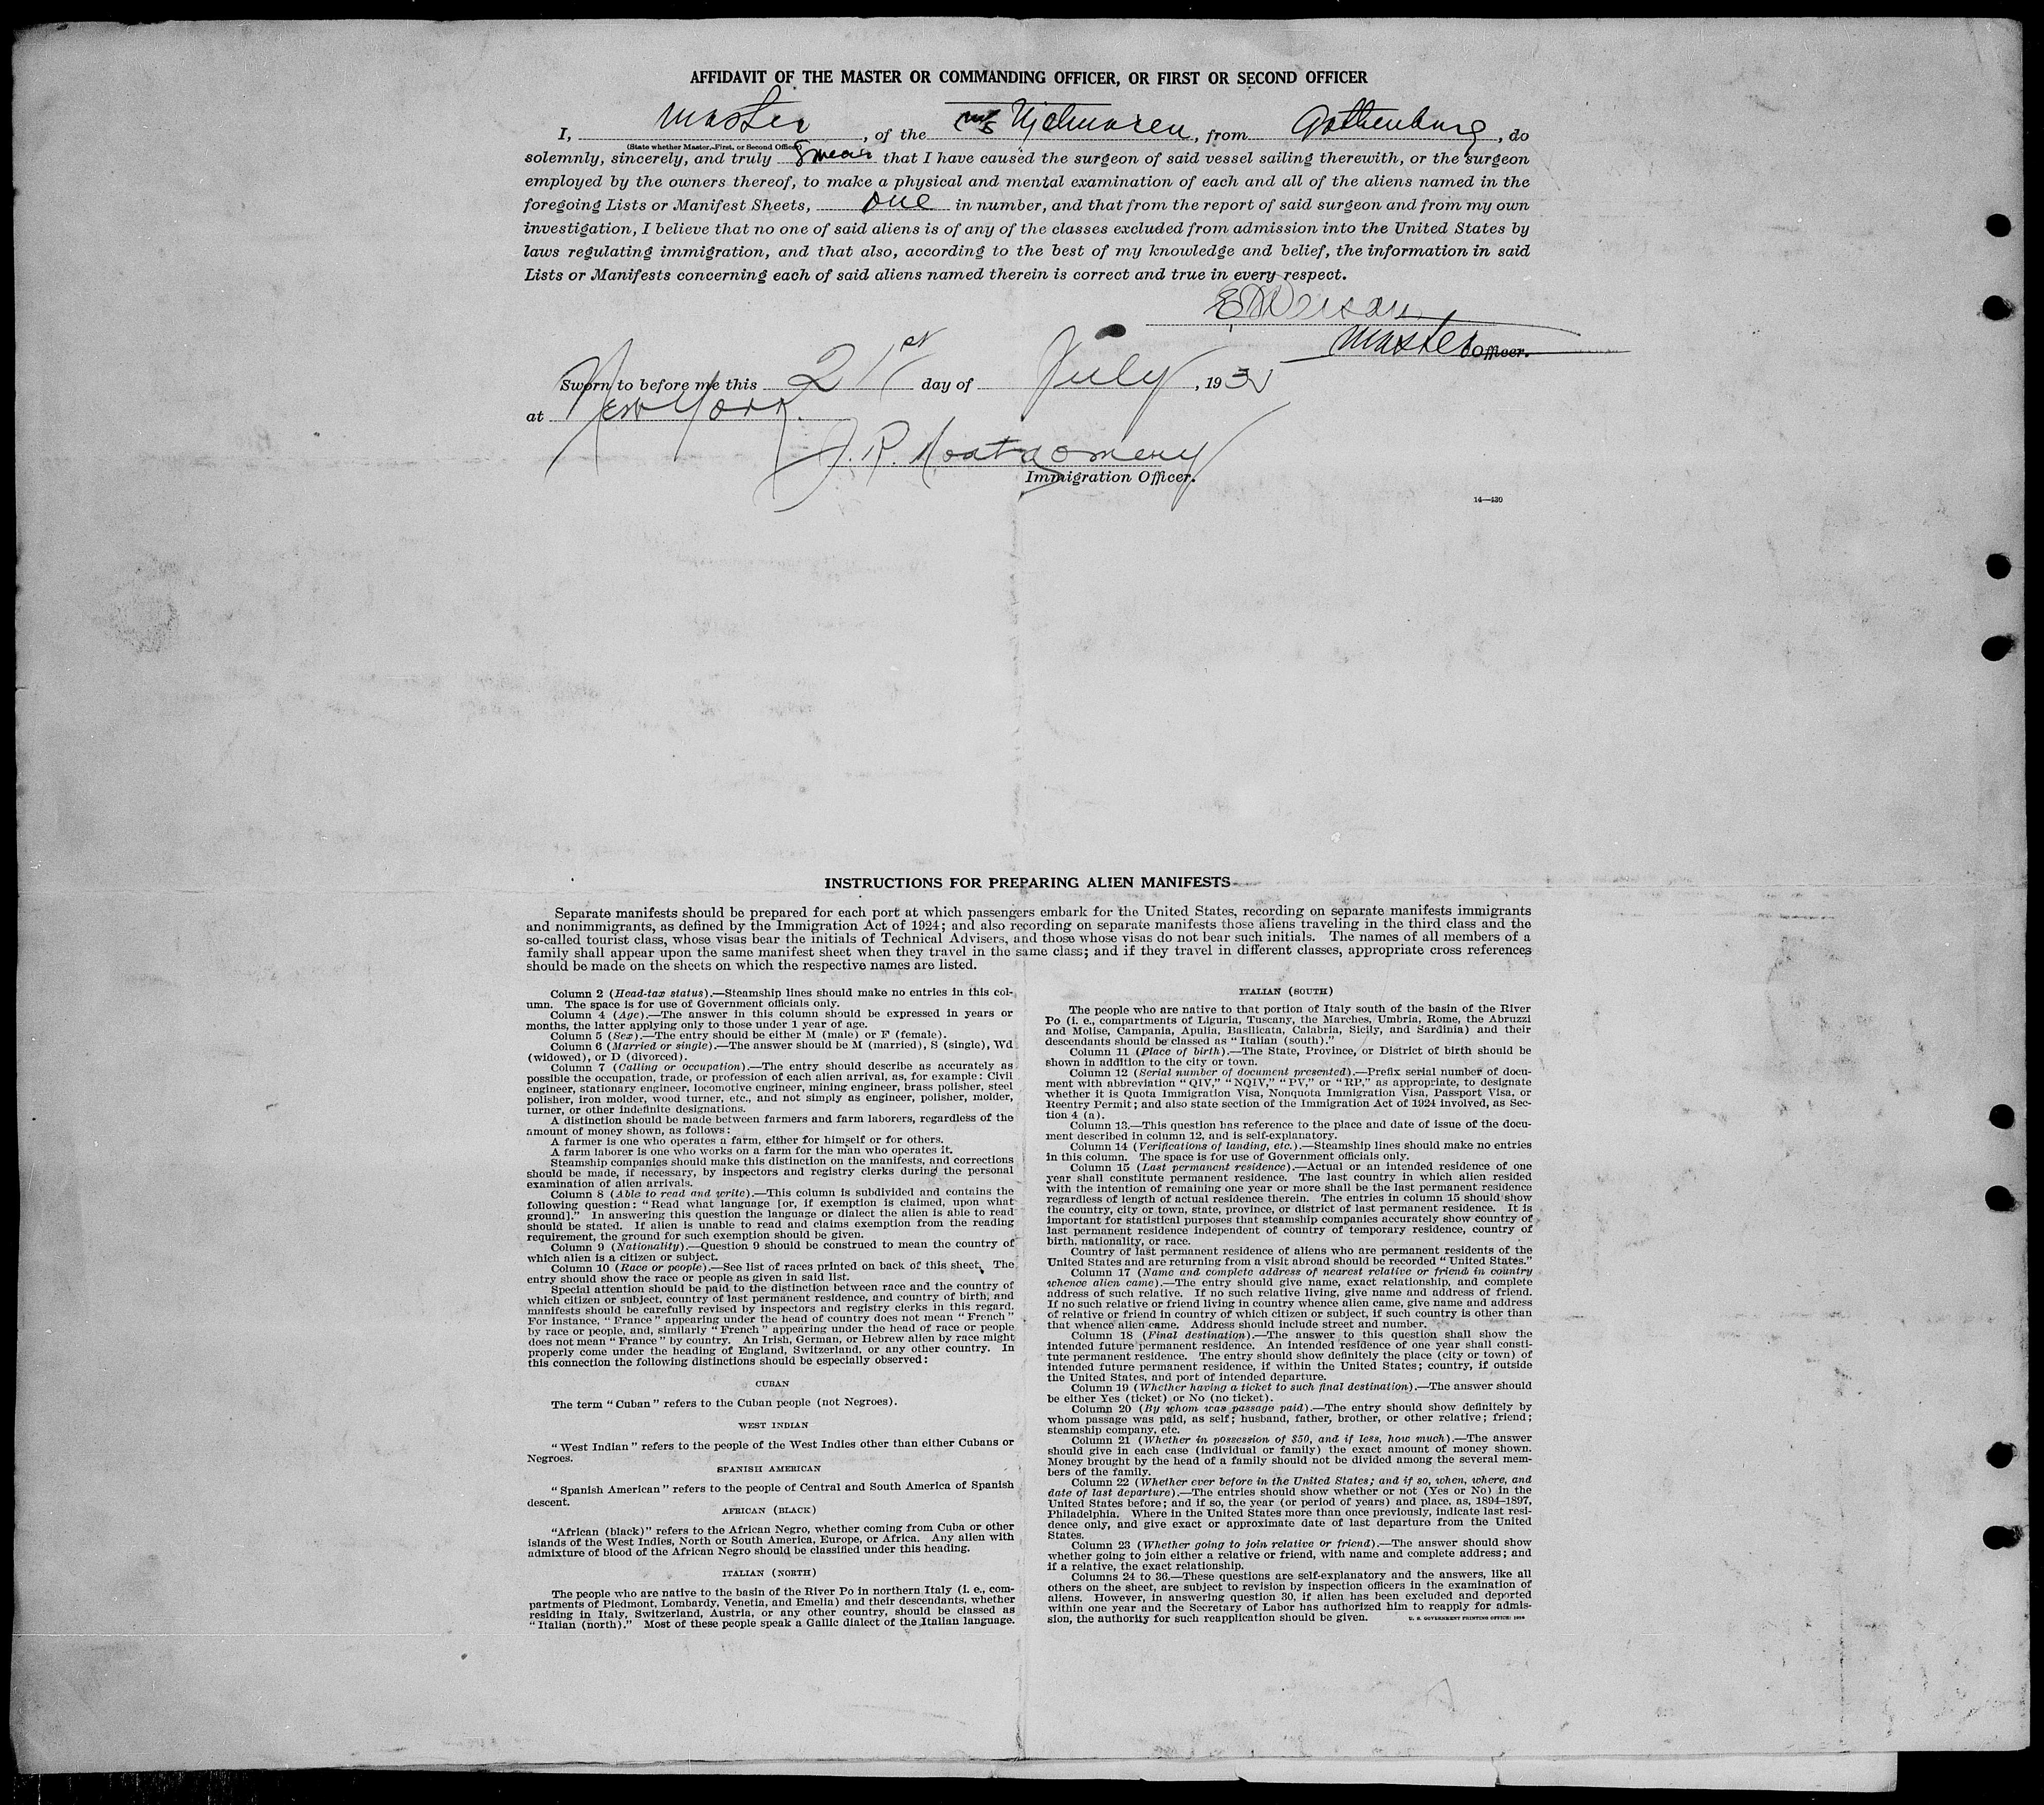 AFFIDAVIT OF THE MASTER OR COMMANDING OFFICER, OR FIRST OR SECOND OFFICER
I, Master, of the m/s, from Gothenburg, do
(State whether Master, First, or Second Officer)
solemnly, sincerely, and truly swear that I have caused the surgeon of said vessel sailing therewith, or the surgeon
employed by the owners thereof, to make a physical and mental examination of each and all of the aliens named in the
foregoing Lists or Manifest Sheets, one in number, and that from the report of said surgeon and from my own
investigation, I believe that no one of said aliens is of any of the classes excluded from admission into the United States by
laws regulating immigration, and that also, according to the best of my knowledge and belief, the information in said
Lists or Manifests concerning each of said aliens named therein is correct and true in every respect.
Master Officer.
Sworn to before me this 21st day of July, 193
at New York.
J. R. Montgomery
Immigration Officer.
14—430
INSTRUCTIONS FOR PREPARING ALIEN MANIFESTS
Separate manifests should be prepared for each port at which passengers embark for the United States, recording on separate manifests immigrants
and nonimmigrants, as defined by the Immigration Act of 1924; and also recording on separate manifests those aliens traveling in the third class and the
so-called tourist class, whose visas bear the initials of Technical Advisers, and those whose visas do not bear such initials. The names of all members of a
family shall appear upon the same manifest sheet when they travel in the same class; and if they travel in different classes, appropriate cross references
should be made on the sheets on which the respective names are listed.
Column 2 (Head-tax status).—Steamship lines should make no entries in this col-
umn. The space is for use of Government officials only.
Column 4 (Age).—The answer in this column should be expressed in years or
months, the latter applying only to those under 1 year of age.
Column 5 (Sex).—The entry should be either M (male) or F (female).
Column 6 (Married or single).—The answer should be M (married), S (single), Wd
(widowed), or D (divorced).
Column 7 (Calling or occupation).—The entry should describe as accurately as
possible the occupation, trade, or profession of each alien arrival, as, for example: Civil
engineer, stationary engineer, locomotive engineer, mining engineer, brass polisher, steel
polisher, iron molder, wood turner, etc., and not simply as engineer, polisher, molder,
turner, or other indefinite designations.
A distinction should be made between farmers and farm laborers, regardless of the
amount of money shown, as follows:
A farmer is one who operates a farm, either for himself or for others.
A farm laborer is one who works on a farm for the man who operates it.
Steamship companies should make this distinction on the manifests, and corrections
should be made, if necessary, by inspectors and registry clerks during the personal
examination of alien arrivals.
Column 8 (Able to read and write).—This column is subdivided and contains the
following question: "Read what language [or, if exemption is claimed, upon what
ground]." In answering this question the language or dialect the alien is able to read
should be stated. If alien is unable to read and claims exemption from the reading
requirement, the ground for such exemption should be given.
Column 9 (Nationality).—Question 9 should be construed to mean the country of
which alien is a citizen or subject.
Column 10 (Race or people).—See list of races printed on back of this sheet. The
entry should show the race or people as given in said list.
Special attention should be paid to the distinction between race and the country of
which citizen or subject, country of last permanent residence, and country of birth, and
manifests should be carefully revised by inspectors and registry clerks in this regard.
For instance, "France" appearing under the head of country does not mean "French"
by race or people, and, similarly "French" appearing under the head of race or people
does not mean "France" by country. An Irish, German, or Hebrew alien by race might
properly come under the heading of England, Switzerland, or any other country. In
this connection the following distinctions should be especially observed:
CUBAN
The term "Cuban" refers to the Cuban people (not Negroes).
WEST INDIAN
"West Indian" refers to the people of the West Indies other than either Cubans or
Negroes.
SPANISH AMERICAN
"Spanish American" refers to the people of Central and South America of Spanish
descent.
AFRICAN (BLACK)
"African (black)" refers to the African Negro, whether coming from Cuba or other
islands of the West Indies, North or South America, Europe, or Africa. Any alien with
admixture of blood of the African Negro should be classified under this heading.
ITALIAN (NORTH)
The people who are native to the basin of the River Po in northern Italy (i. e., com-
partments of Piedmont, Lombardy, Venetia, and Emelia) and their descendants, whether
residing in Italy, Switzerland, Austria, or any other country, should be classed as
"Italian (north)." Most of these people speak a Gallic dialect of the Italian language.
ITALIAN (SOUTH)
The people who are native to that portion of Italy south of the basin of the River
Po (i. e., compartments of Liguria, Tuscany, the Marches, Umbria, Rome, the Abruzzi
and Molise, Campania, Apulia, Basilicata, Calabria, Sicily, and Sardinia) and their
descendants should be classed as "Italian (south)."
Column 11 (Place of birth).—The State, Province, or District of birth should be
shown in addition to the city or town.
Column 12 (Serial number of document presented).—Prefix serial number of docu-
ment with abbreviation "QIV," "NQIV," "PV," or "RP," as appropriate, to designate
whether it is Quota Immigration Visa, Nonquota Immigration Visa, Passport Visa, or
Reentry Permit; and also state section of the Immigration Act of 1924 involved, as Sec-
tion 4 (a).
Column 13.—This question has reference to the place and date of issue of the docu-
ment described in column 12, and is self-explanatory.
Column 14 (Verifications of landing, etc.).—Steamship lines should make no entries
in this column. The space is for use of Government officials only.
Column 15 (Last permanent residence).—Actual or an intended residence of one
year shall constitute permanent residence. The last country in which alien resided
with the intention of remaining one year or more shall be the last permanent residence
regardless of length of actual residence therein. The entries in column 15 should show
the country, city or town, state, province, or district of last permanent residence. It is
important for statistical purposes that steamship companies accurately show country of
last permanent residence independent of country of temporary residence, country of
birth, nationality, or race.
Country of last permanent residence of aliens who are permanent residents of the
United States and are returning from a visit abroad should be recorded "United States."
Column 17 (Name and complete address of nearest relative or friend in country
whence alien came).—The entry should give name, exact relationship, and complete
address of such relative. If no such relative living, give name and address of friend.
If no such relative or friend living in country whence alien came, give name and address
of relative or friend in country of which citizen or subject, if such country is other than
that whence alien came. Address should include street and number.
Column 18 (Final destination).—The answer to this question shall show the
intended future permanent residence. An intended residence of one year shall consti-
tute permanent residence. The entry should show definitely the place (city or town) of
intended future permanent residence, if within the United States; country, if outside
the United States, and port of intended departure.
Column 19 (Whether having a ticket to such final destination).—The answer should
be either Yes (ticket) or No (no ticket).
Column 20 (By whom was passage paid).—The entry should show definitely by
whom passage was paid, as self; husband, father, brother, or other relative; friend;
steamship company, etc.
Column 21 (Whether in possession of $50, and if less, how much).—The answer
should give in each case (individual or family) the exact amount of money shown.
Money brought by the head of a family should not be divided among the several mem-
bers of the family.
Column 22 (Whether ever before in the United States; and if so, when, where, and
date of last departure).—The entries should show whether or not (Yes or No) in the
United States before; and if so, the year (or period of years) and place, as, 1894–1897,
Philadelphia. Where in the United States more than once previously, indicate last resi-
dence only, and give exact or approximate date of last departure from the United
States.
Column 23 (Whether going to join relative or friend).—The answer should show
whether going to join either a relative or friend, with name and complete address; and
if a relative, the exact relationship.
Columns 24 to 36.—These questions are self-explanatory and the answers, like all
others on the sheet, are subject to revision by inspection officers in the examination of
aliens. However, in answering question 30, if alien has been excluded and deported
within one year and the Secretary of Labor has authorized him to reapply for admis-
sion, the authority for such reapplication should be given.
U. S. GOVERNMENT PRINTING OFFICE: